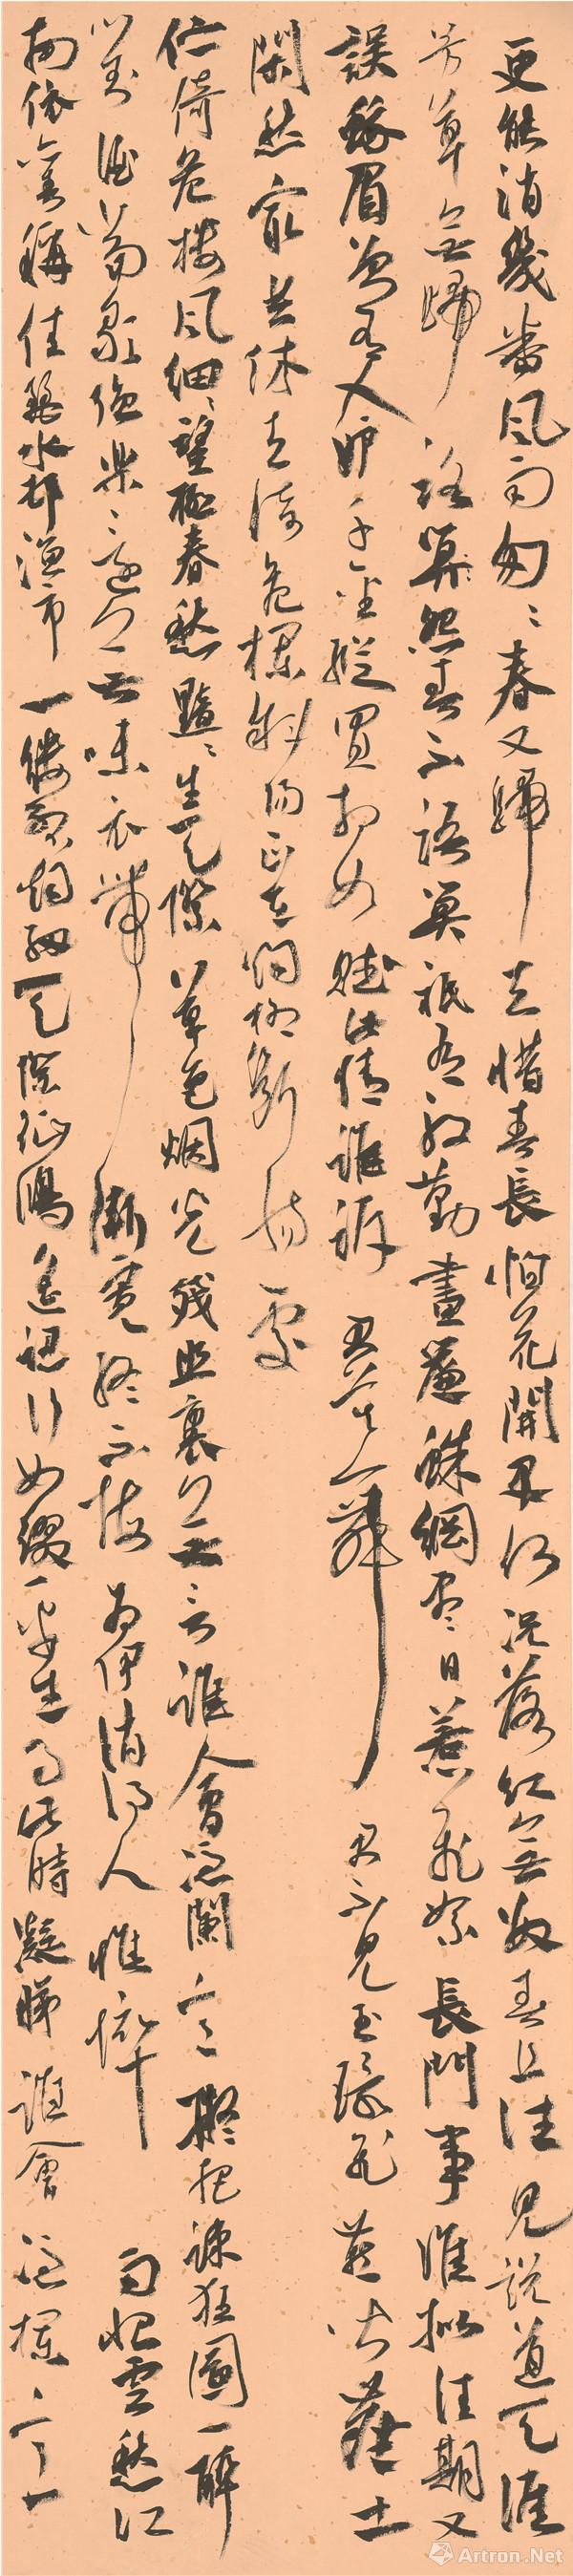 更能消幾番風雨匆〻春又歸去惜春長怕花開早何況落紅無數春且住見說道天涯
芳草無歸路算怨春不語算祇有殷勤畫簷蛛網盡日惹飛絮長門事準擬佳期又
誤蛾眉曾有人妒千金縱買相如賦此情誰訴君莫舞君不見玉環飛燕皆塵土
閑愁最苦休去倚危欄斜陽正在烟柳斷腸處
佇倚危樓風細〻望極春愁黯〻生天際草色烟光殘照裏無言誰會憑闌意擬把疎狂圖一醉
對酒當歌強樂〻還無味衣帶漸寬終不悔為伊消得人憔悴雨恨雲愁江
南依舊稱佳麗水村漁市一縷孤烟細天際征鴻遙認行如綴平生事此時凝睇誰會憑欄意
Artron.Net